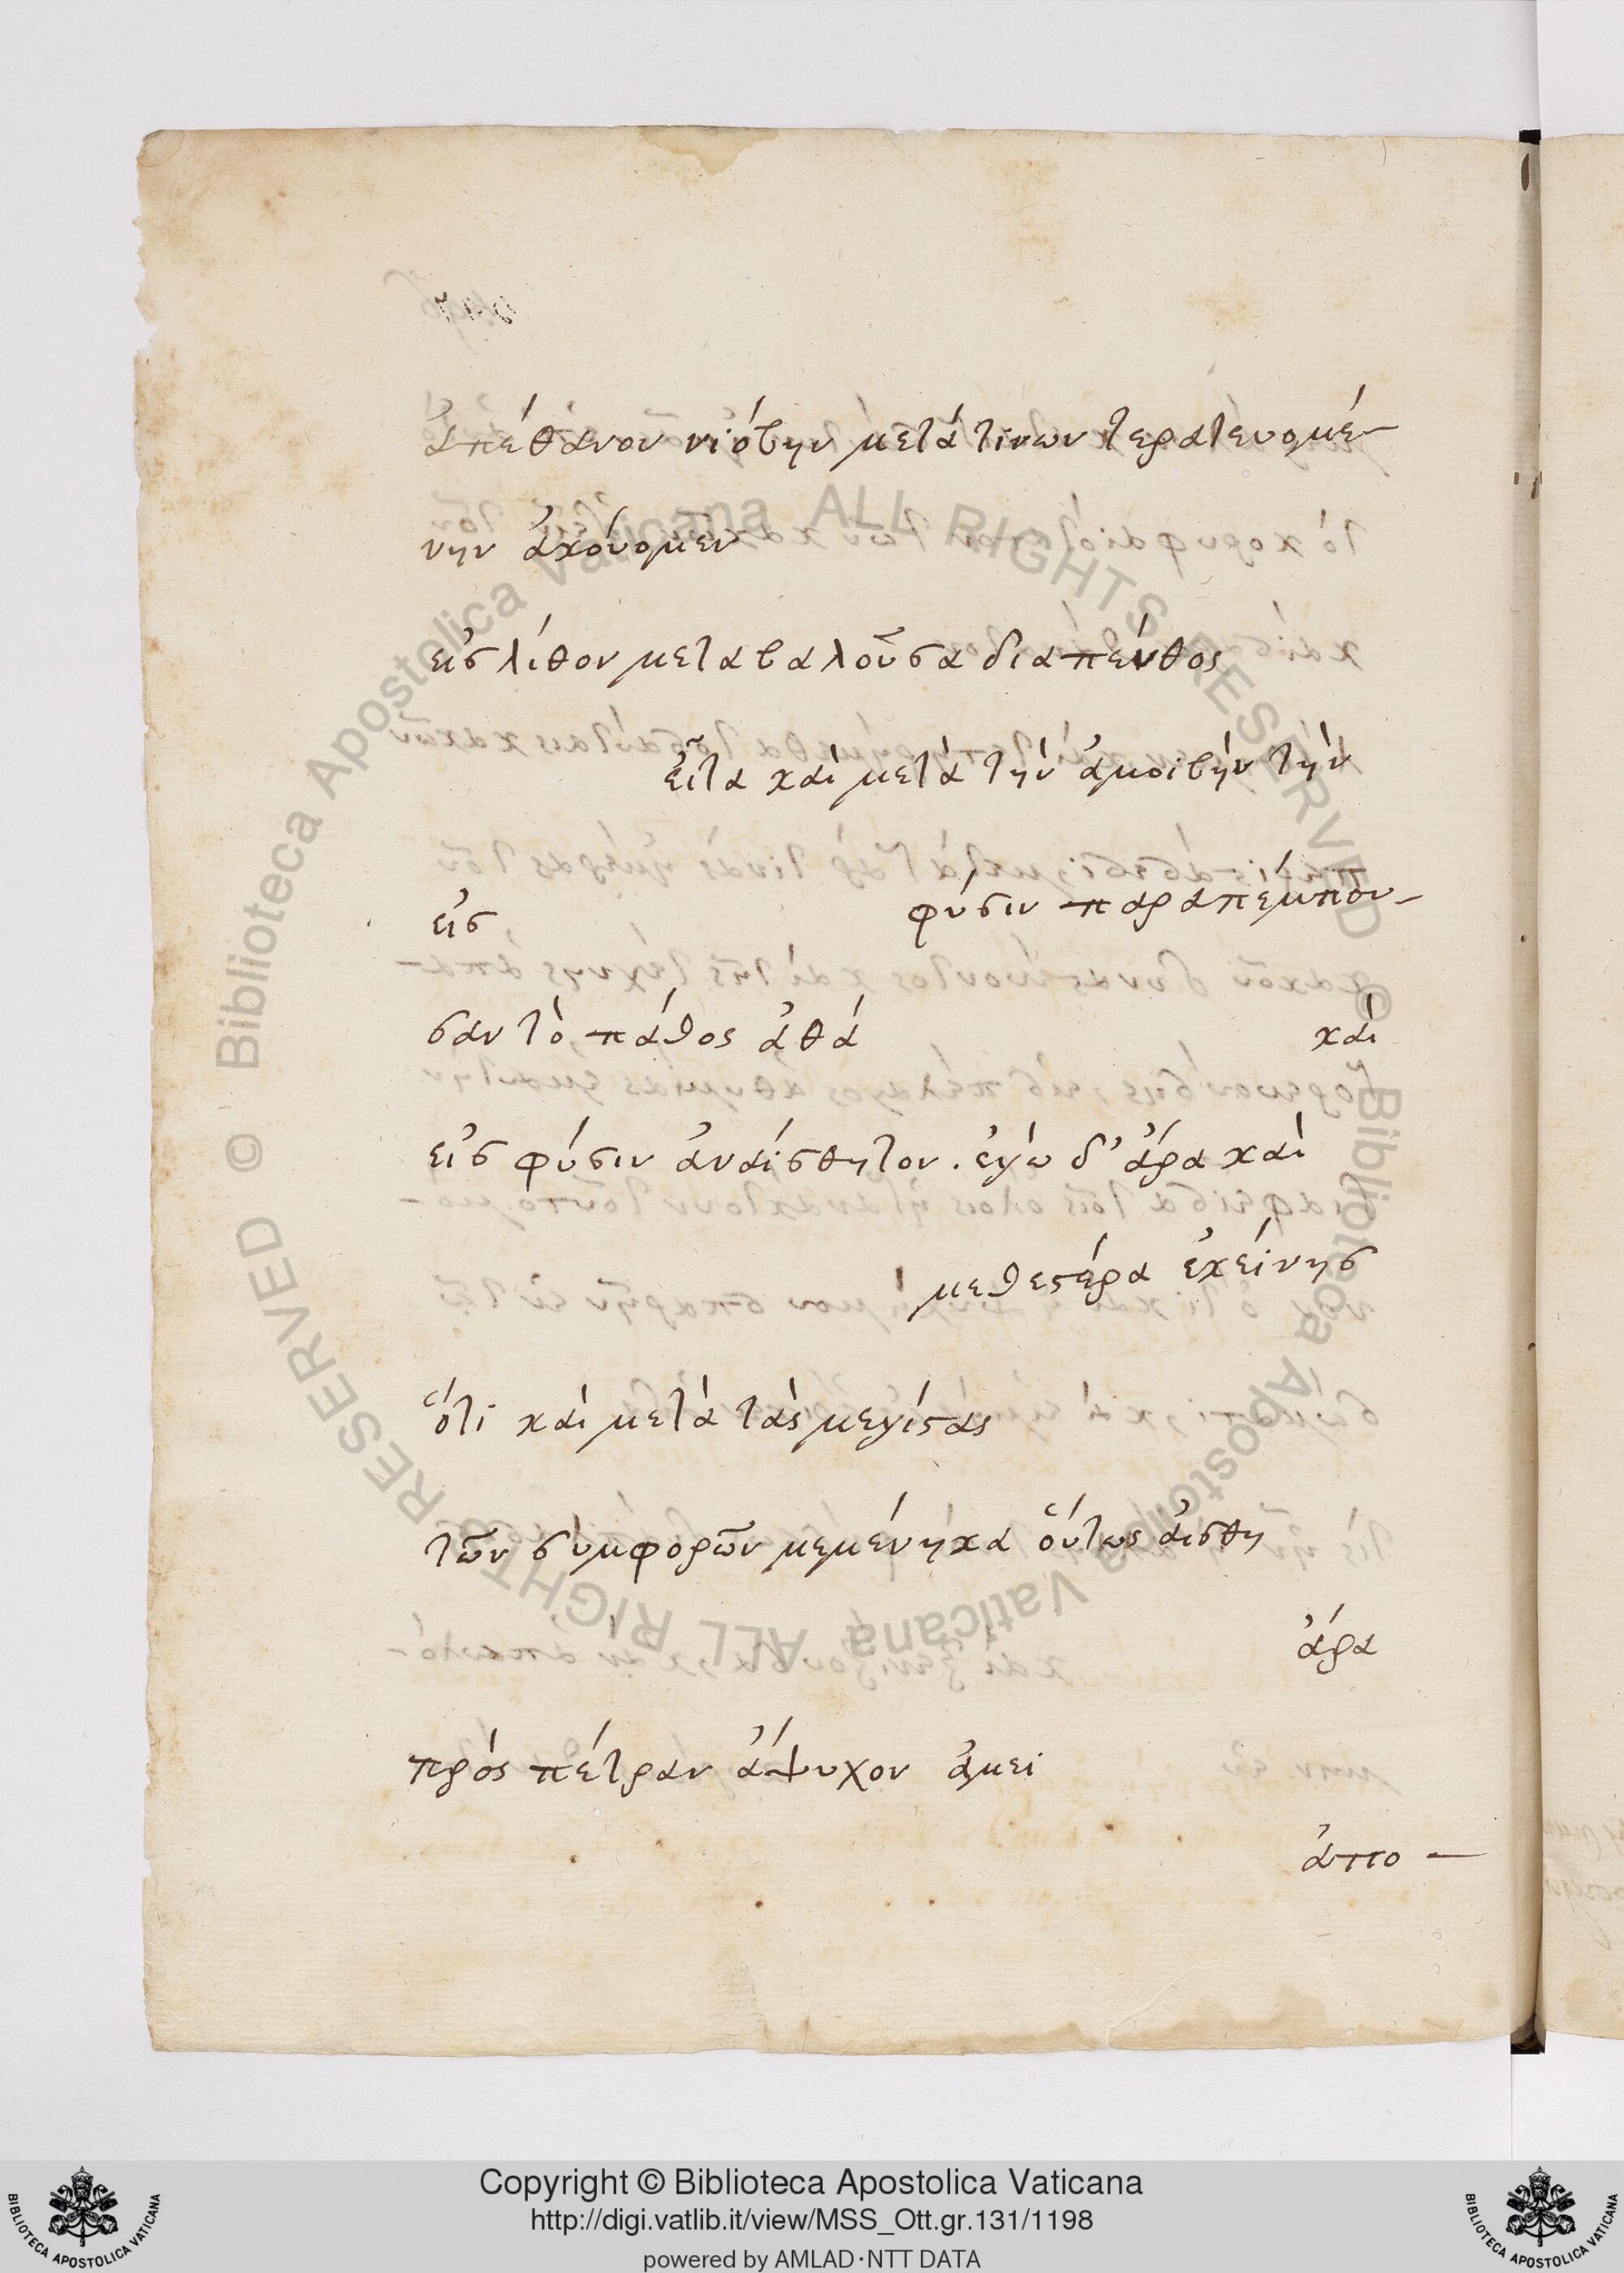 ἀπέθανον νιόβην μετά τινων τερατευομέ-
νην ἀκούομεν
εἰς λίθον μεταβαλοῦσα διαπένθος
εἶτα καὶ μετὰ τὴν ἀμοιβὴν τὴν
εἰς φύσιν παραπεμπον-
σαν τὸ πάθος ἀθά καὶ
εἰς φύσιν ἀναίσθητον. ἐγὼ δ' ἄρα καὶ
μεθεστέρα ἐκείνης
ὅτι καὶ μετὰ τὰς μεγίστας
τῶν συμφορῶν μεμένηκα οὕτως αἰσθη
ἄρα
πρὸς πέτραν ἄψυχον ἀμει
ἀπο-
Copyright © Biblioteca Apostolica Vaticana
http://digi.vatlib.it/view/MSS_Ott.gr.131/1198
powered by AMLAD·NTT DATA
© Biblioteca Apostolica Vaticana ALL RIGHTS RESERVED
© Biblioteca Apostolica Vaticana ALL RIGHTS RESERVED
BIBLIOTECA APOSTOLICA VATICANA
BIBLIOTECA APOSTOLICA VATICANA